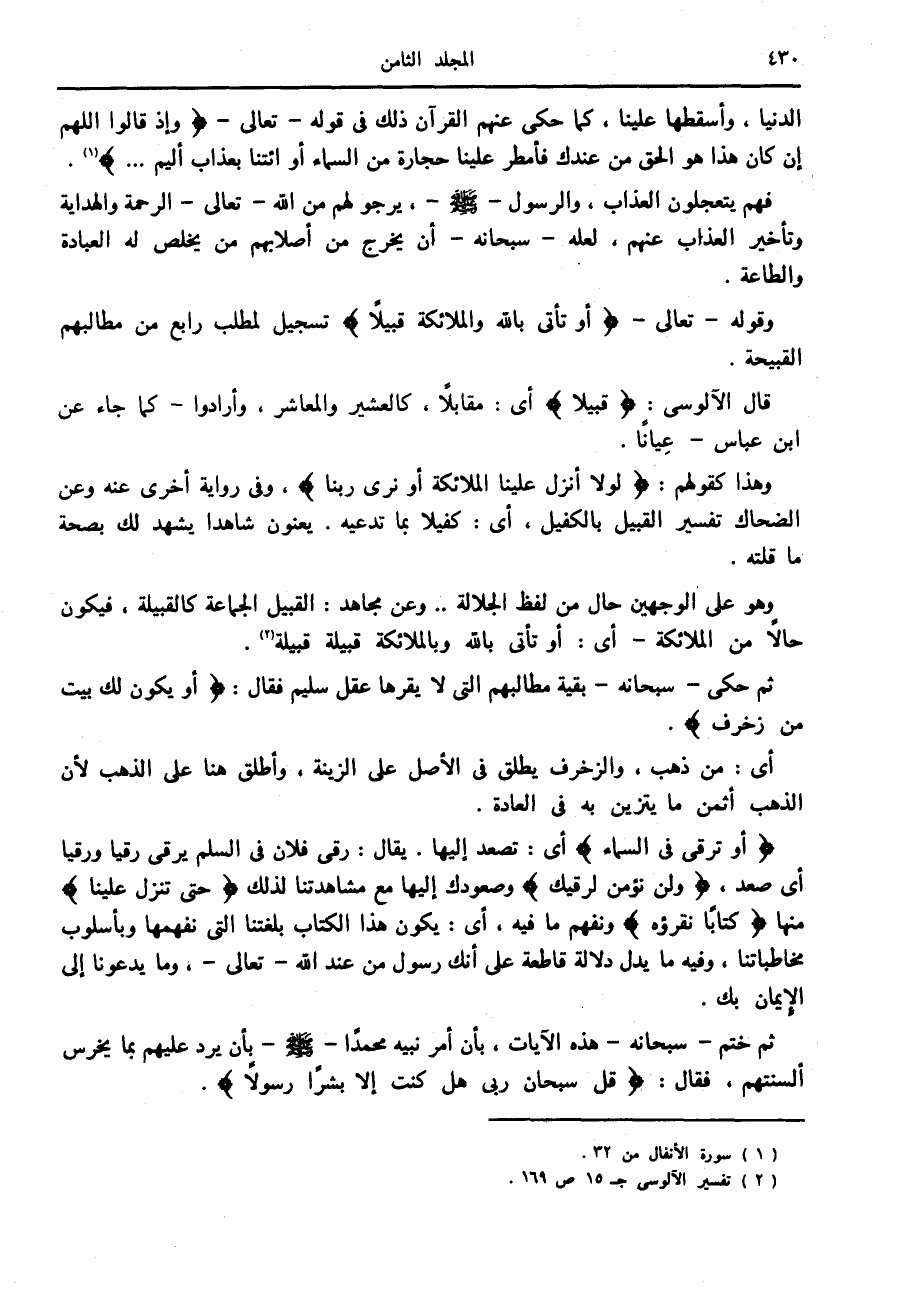 ٤٣٠ المجلد الثامن
الدنيا ، وأسقطها علينا ، كما حكى عنهم القرآن ذلك فى قوله – تعالى – ﴿ وإذ قالوا اللهم
إن كان هذا هو الحق من عندك فأمطر علينا حجارة من السماء أو ائتنا بعذاب أليم ... ﴾(١) .
فهم يتعجلون العذاب ، والرسول – ﷺ – ، يرجو لهم من الله – تعالى – الرحمة والهداية
وتأخير العذاب عنهم ، لعله – سبحانه – أن يخرج من أصلابهم من يخلص له العبادة
والطاعة .
وقوله – تعالى – ﴿ أو تأتى بالله والملائكة قبيلًا ﴾ تسجيل لمطلب رابع من مطالبهم
القبيحة .
قال الآلوسى : ﴿ قبيلا ﴾ أى : مقابلًا ، كالعشير والمعاشر ، وأرادوا – كما جاء عن
ابن عباس – عِيانًا .
وهذا كقولهم : ﴿ لولا أنزل علينا الملائكة أو نرى ربنا ﴾ ، وفى رواية أخرى عنه وعن
الضحاك تفسير القبيل بالكفيل ، أى : كفيلا بما تدعيه . يعنون شاهدا يشهد لك بصحة
ما قلته .
وهو على الوجهين حال من لفظ الجلالة .. وعن مجاهد : القبيل الجماعة كالقبيلة ، فيكون
حالًا من الملائكة – أى : أو تأتى بالله وبالملائكة قبيلة قبيلة(٢) .
ثم حكى – سبحانه – بقية مطالبهم التى لا يقرها عقل سليم فقال : ﴿ أو يكون لك بيت
من زخرف ﴾ .
أى : من ذهب ، والزخرف يطلق فى الأصل على الزينة ، وأطلق هنا على الذهب لأن
الذهب أثمن ما يتزين به فى العادة .
﴿ أو ترقى فى السماء ﴾ أى : تصعد إليها . يقال : رقى فلان فى السلم يرقى رقيا ورقيا
أى صعد ، ﴿ ولن نؤمن لرقيك ﴾ وصعودك إليها مع مشاهدتنا لذلك ﴿ حتى تنزل علينا ﴾
منها ﴿ كتابًا نقرؤه ﴾ ونفهم ما فيه ، أى : يكون هذا الكتاب بلغتنا التى نفهمها وبأسلوب
مخاطباتنا ، وفيه ما يدل دلالة قاطعة على أنك رسول من عند الله – تعالى – ، وما يدعونا إلى
الإيمان بك .
ثم ختم – سبحانه – هذه الآيات ، بأن أمر نبيه محمدًا – ﷺ – بأن يرد عليهم بما يخرس
ألسنتهم ، فقال : ﴿ قل سبحان ربى هل كنت إلا بشرًا رسولًا ﴾ .
( ١ ) سورة الأنفال من ٣٢ .
( ٢ ) تفسير الآلوسى جـ ١٥ ص ١٦٩ .